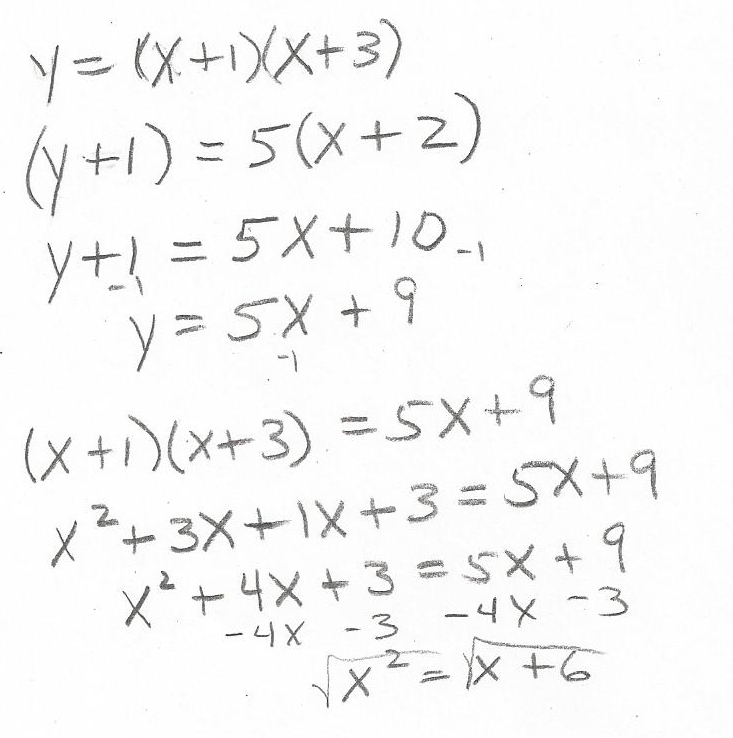 y = (x+1)(x+3)
(y+1) = 5(x+2)
y+1 = 5x+10-1
-1
y = 5x + 9
-1
(x+1)(x+3) = 5x+9
x²+3x+1x+3 = 5x+9
x²+4x+3 = 5x+9
-4x -3 -4x -3
√x² = √x+6